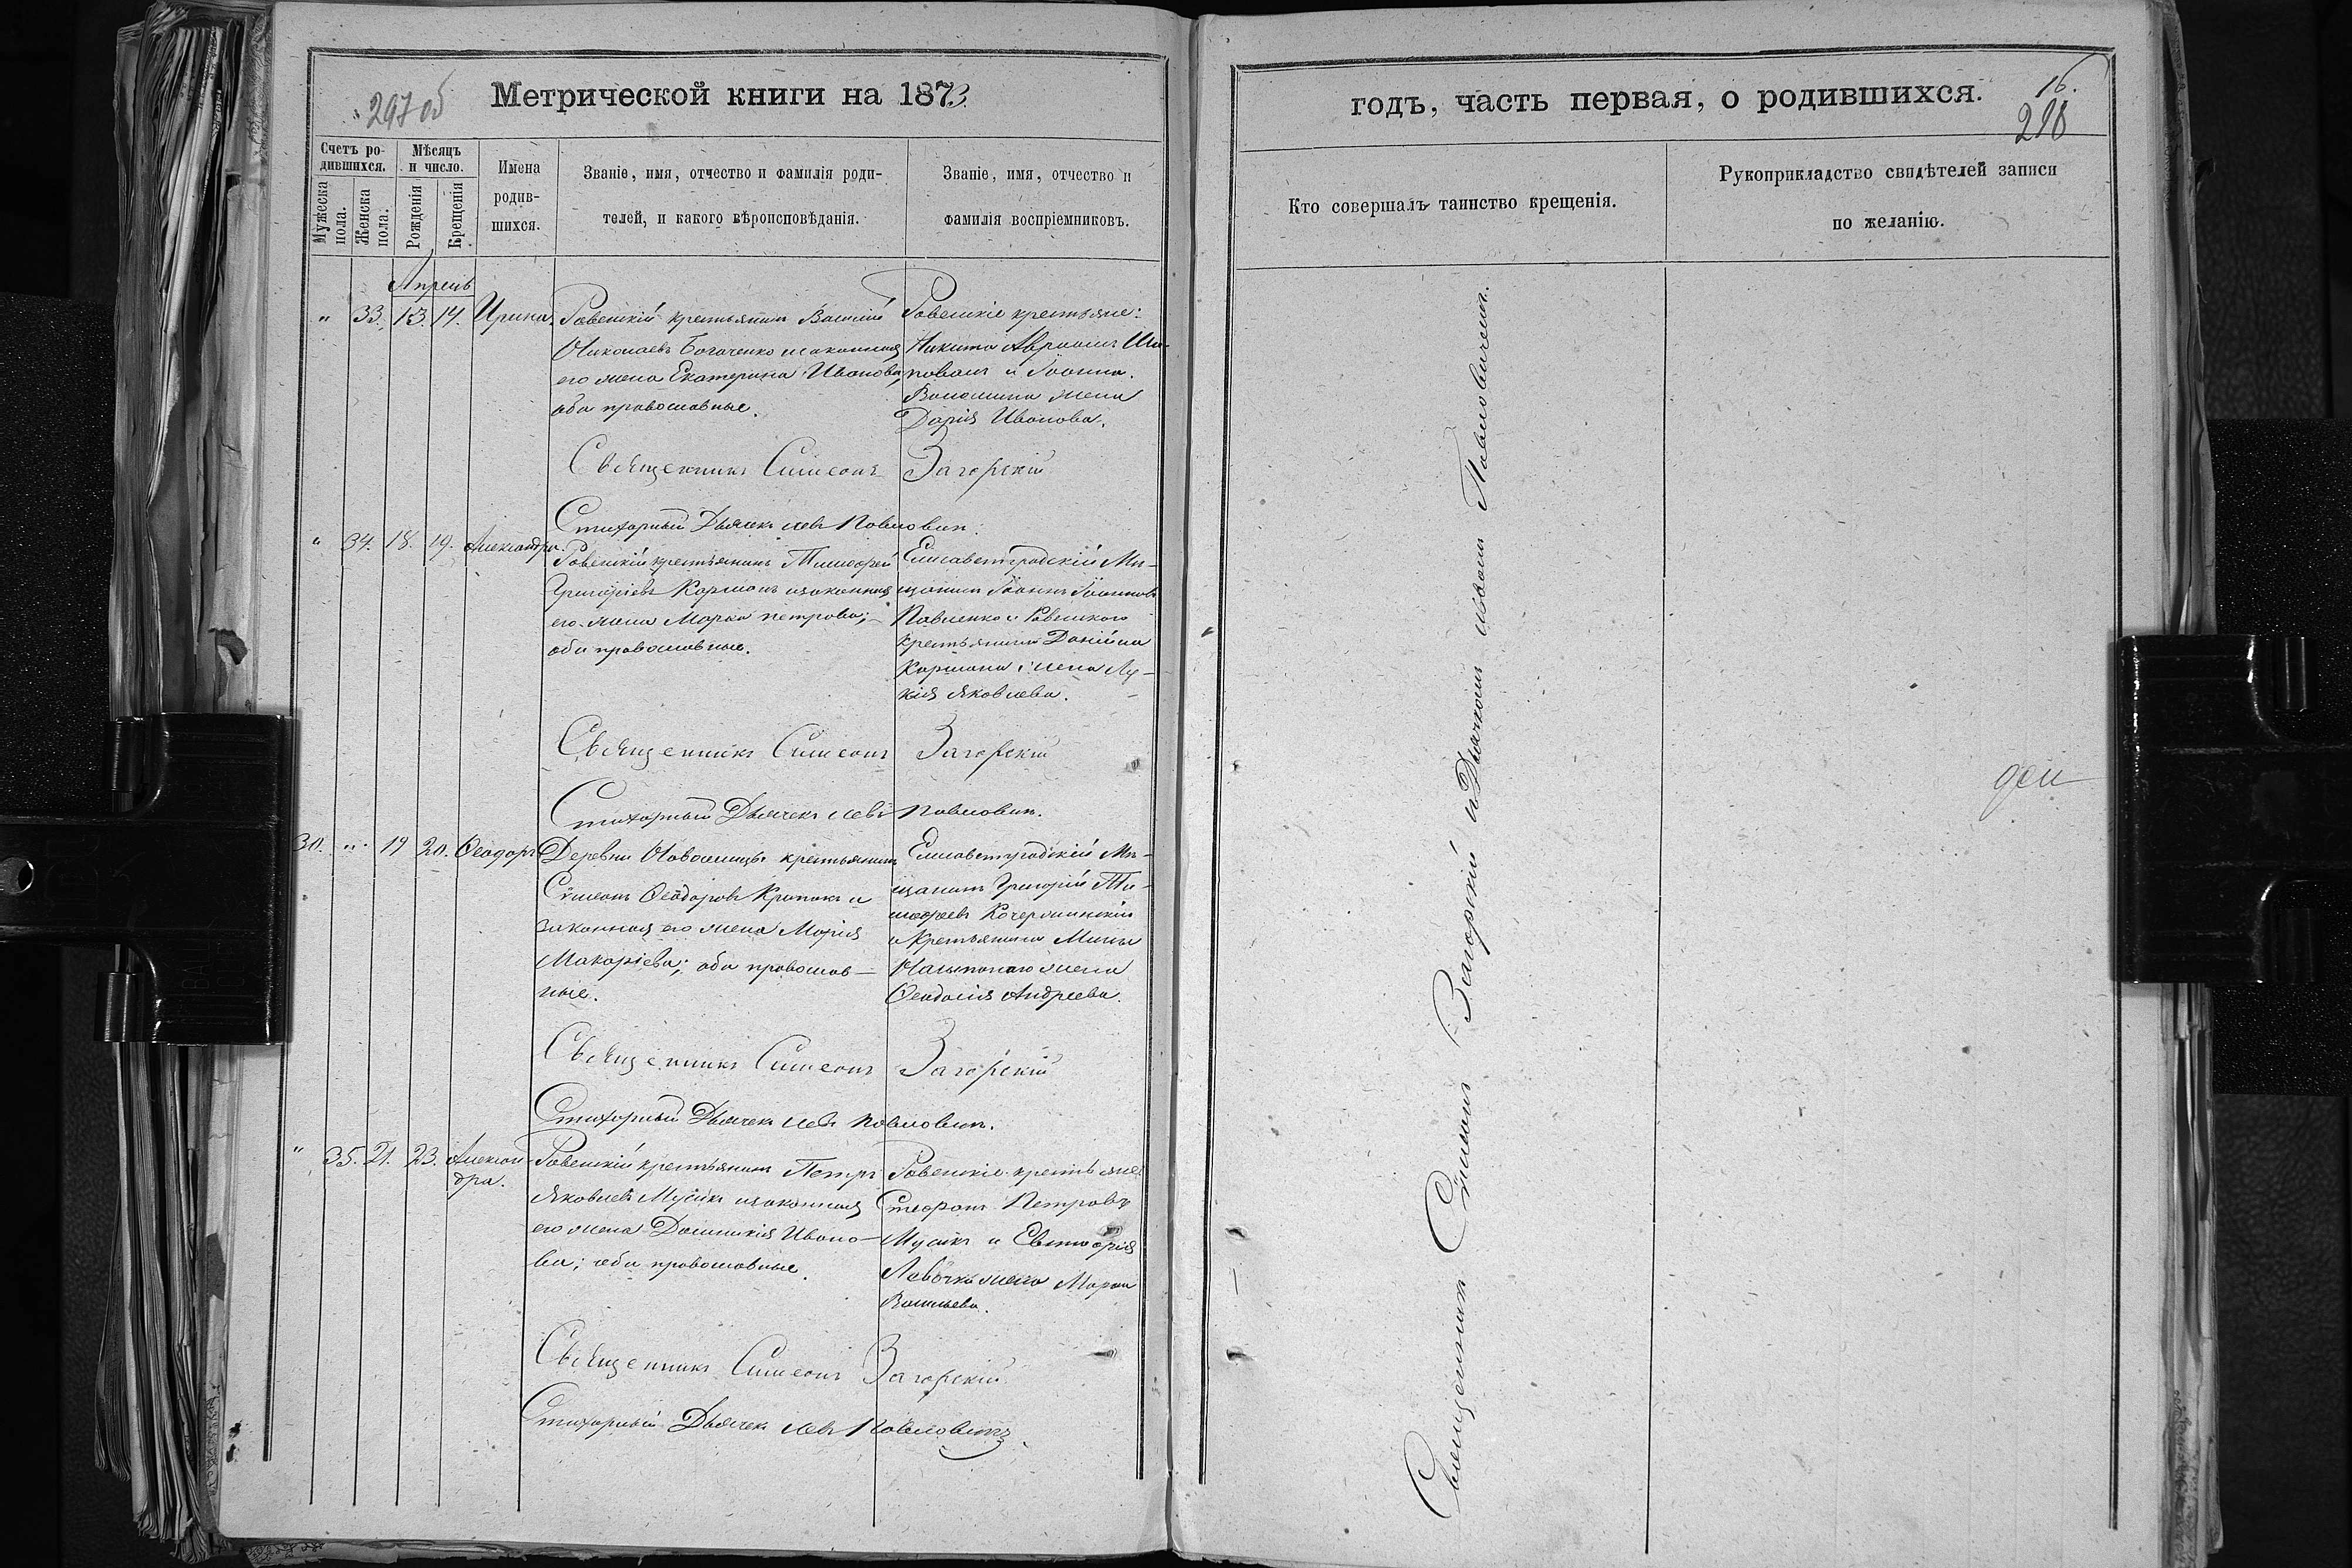 297 об
Метрической книги на 1873
Счетъ ро-
дившихся.
Мужеска
пола.
Женска
пола.
Мѣсяцъ
и число.
Рожденія
Крещенія
Имена
родив-
шихся.
Званіе, имя, отчество и фамилія роди-
телей, и какого вѣроисповѣданія.
Званіе, имя, отчество и
фамилія воспріемниковъ.
Апрель
" 33. 13. 14. Ирина.
Ровенскій крестьянинъ Василій
Николаевъ Богаченко и законная
его жена Екатерина Иванова,
оба православные.
Ровенскіе крестьяне:
Никита
и Іоанна
жена
Дарія Иванова.
Священникъ Симеонъ Загорскій
Стихарный Дьячекъ Левъ Павловичъ.
" 34. 18. 19. Александра.
Ровенскій крестьянинъ Тимофей
Григоріевъ Коршонъ и законная
его жена Марѳа Петрова;
оба православные.
Елисаветградскій Мѣ-
щанинъ Іоаннъ Іоанновъ
Павленко и Ровенского
крестьянина Даніила
Коршона жена Лу-
кія Яковлева.
Священникъ Симеонъ Загорскій
Стихарный Дьячекъ Левъ Павловичъ.
30. " 19 20. Ѳеодоръ
Деревни крестьянинъ
Сѵмеонъ Ѳеодоровъ и
законная его жена Марія
Макаріева; оба православ-
ные.
Елисаветградскій Мѣ-
щанинъ Григорій Ти-
мофеевъ
и крестьянина Мины
жена
Ѳеодосія Андреева.
Священникъ Симеонъ Загорскій
Стихарный Дьячекъ Левъ Павловичъ.
" 35. 21. 23. Алексан-
дра.
Ровенскій крестьянинъ Петръ
Яковлевъ Мусикъ и законная
его жена Домникія Ивано-
ва; оба православные.
Ровенскіе крестьяне
Стефанъ Петровъ
Мусикъ и Евтихія
жена Марѳа
Васильева.
Священникъ Симеонъ Загорскій
Стихарный Дьячекъ Левъ Павловичъ.
годъ, часть первая, о родившихся.
16.
298
Кто совершалъ таинство крещенія.
Рукоприкладство свидѣтелей записи
по желанію.
Священникъ Сѵмеонъ Загорскій и Дьячкомъ Львомъ Павловичемъ.